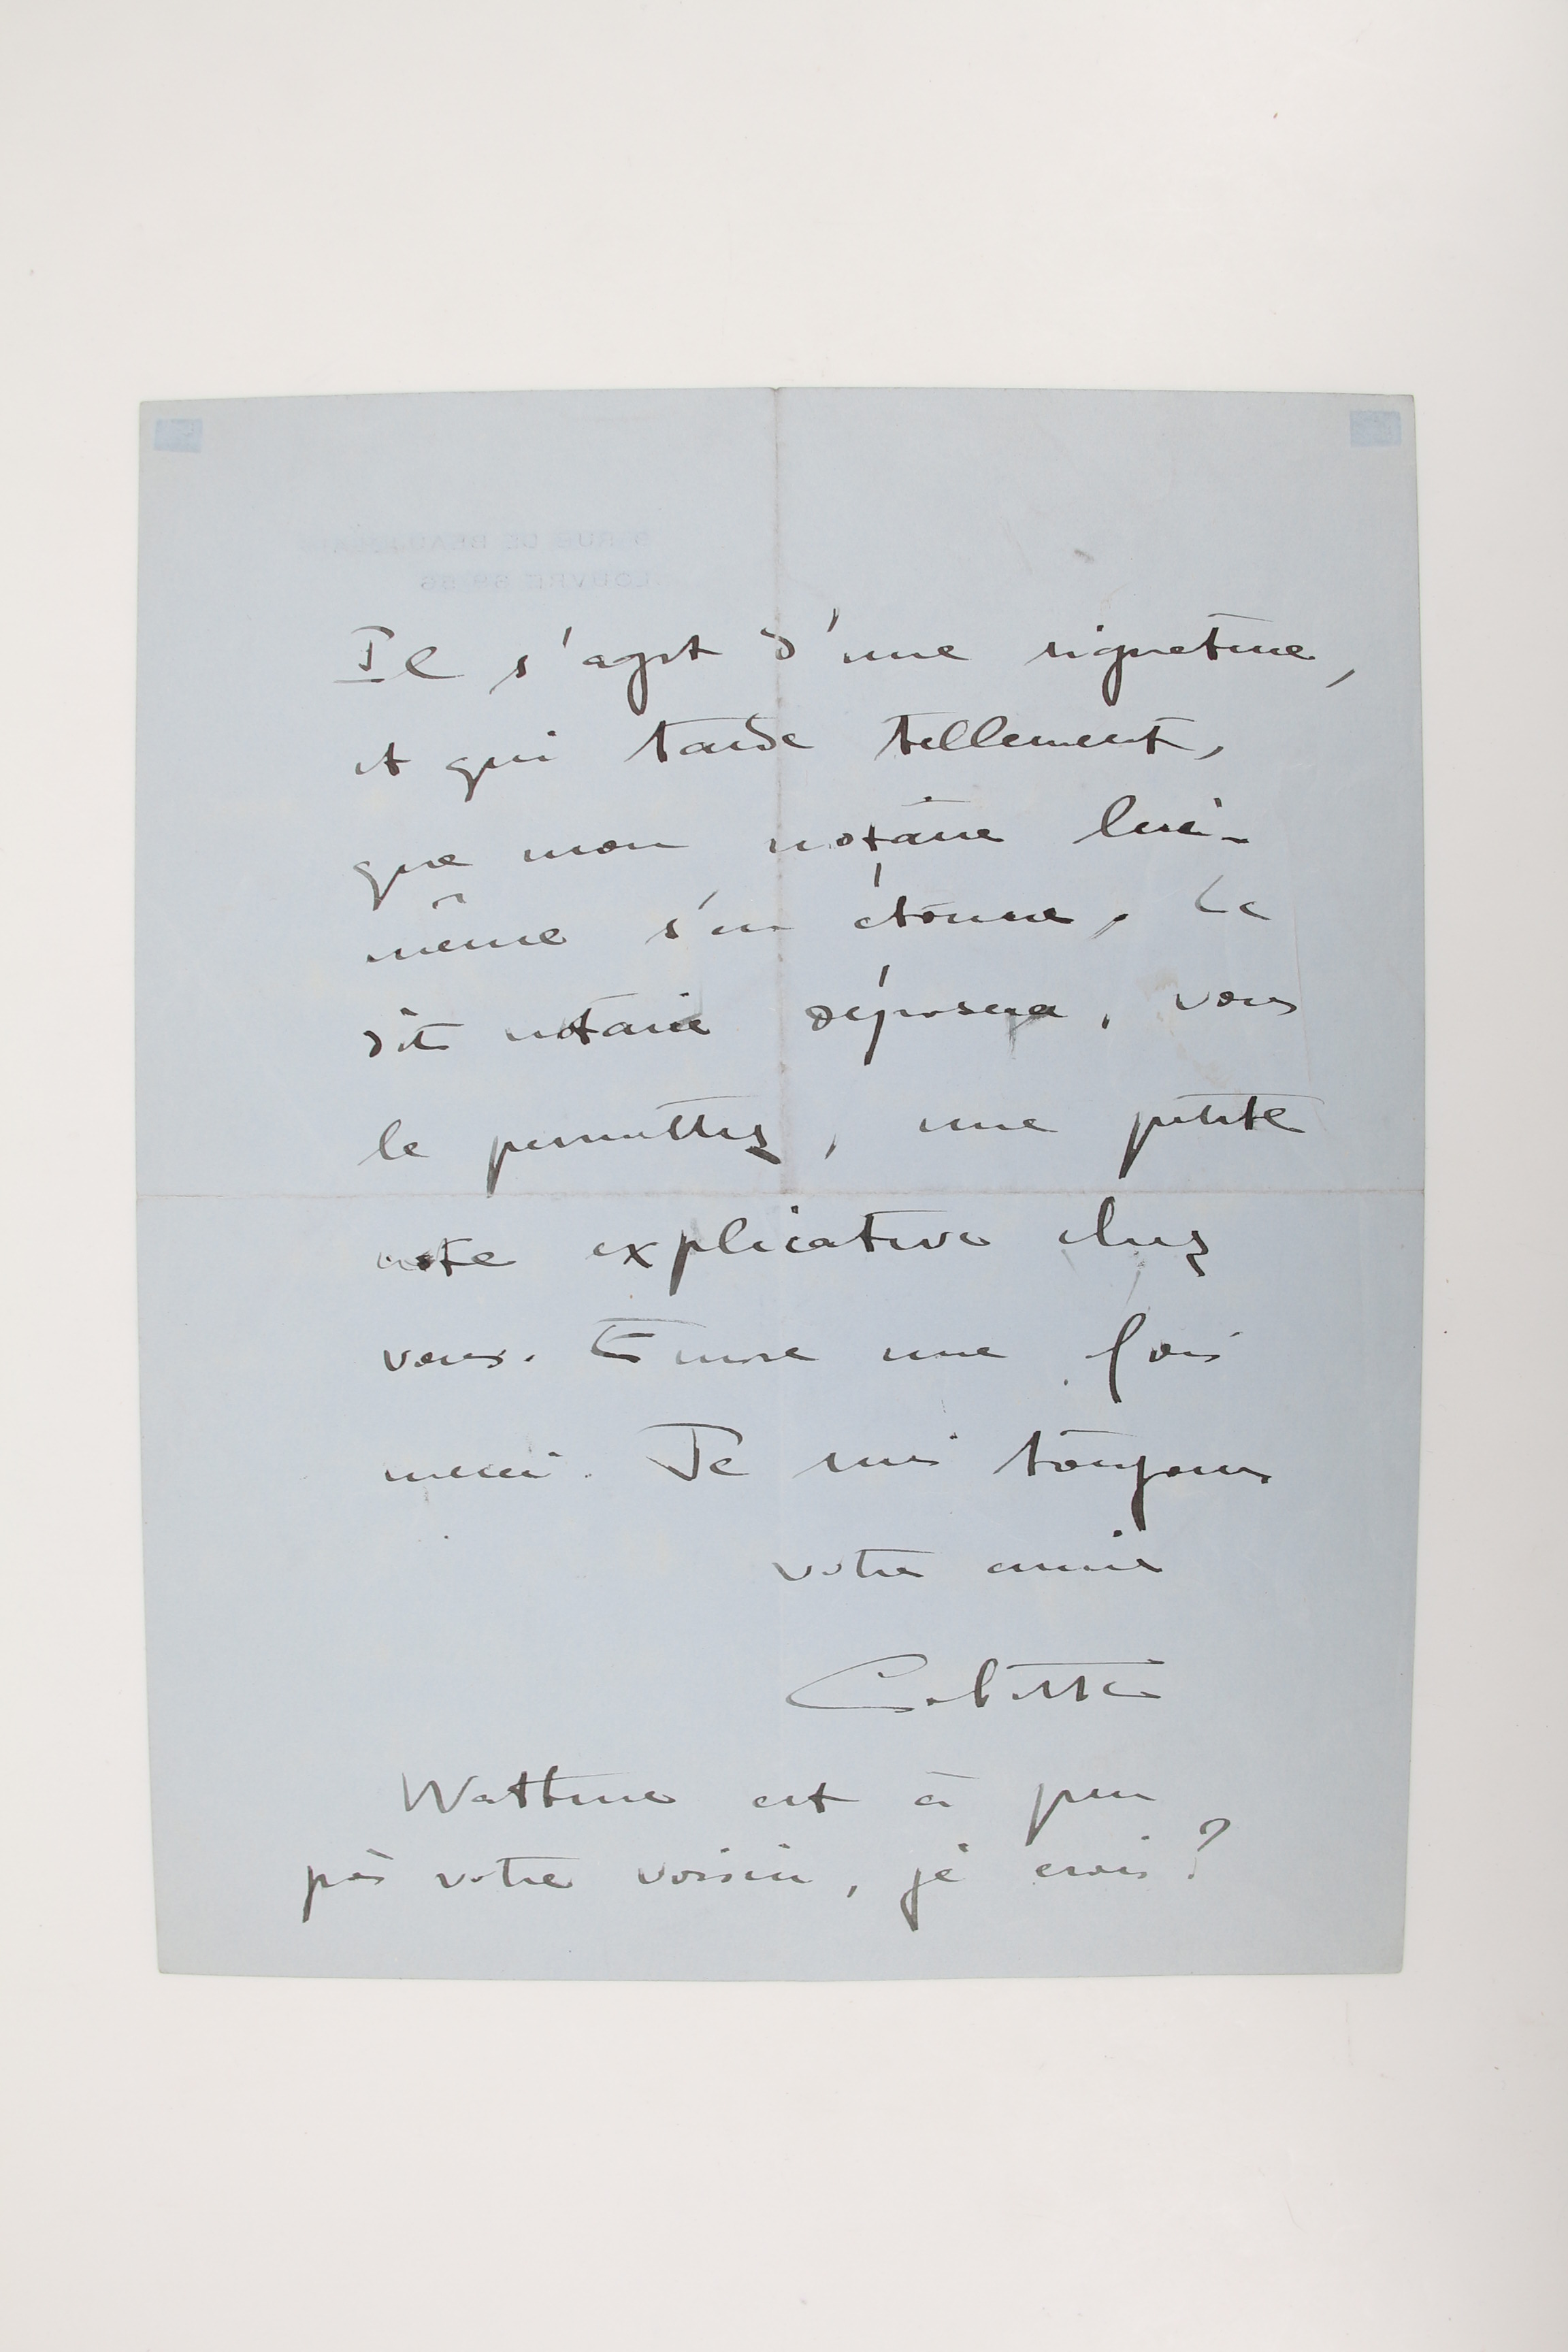 Il s'agit d'une signature,
et qui tarde tellement,
que mon notaire lui-
même s'en étonne. Le
dit notaire déposera, vous
le permettez, une petite
note explicative chez
vous. Encore une fois
merci. Je suis toujours
votre amie
Colette
est à peu
près votre voisin, je crois ?